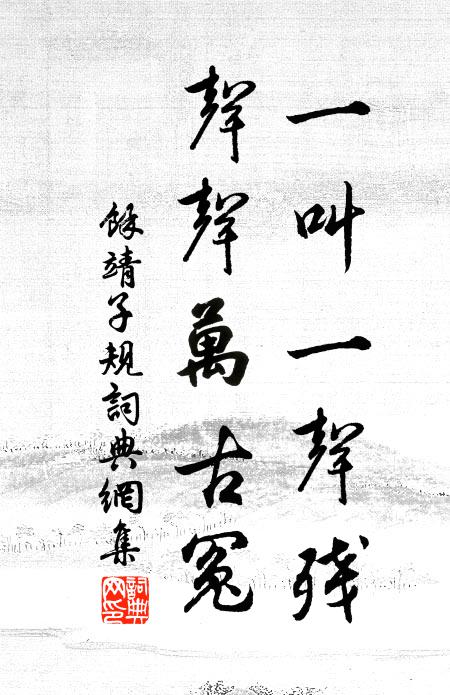 一叫一聲殘
聲聲萬古冤
餘靖子規詞典網集
詞典網印